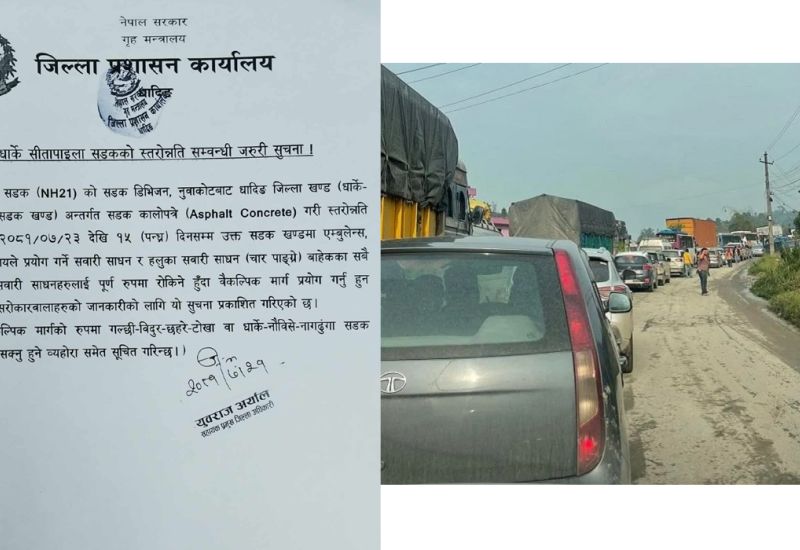 नेपाल सरकार
गृह मन्त्रालय
जिल्ला प्रशासन कार्यालय
धादिङ
धार्के सीतापाइला सडकको स्तरोन्नति सम्वन्धी जरुरी सुचना !
सडक (NH21) को सडक डिभिजन, नुवाकोटबाट धादिङ जिल्ला खण्ड (धार्के-
सडक खण्ड) अन्तर्गत सडक कालोपत्रे (Asphalt Concrete) गरी स्तरोन्नति
२०८१/०७/२३ देखि १५ (पन्ध्र) दिनसम्म उक्त सडक खण्डमा एम्बुलेन्स,
ायले प्रयोग गर्ने सवारी साधन र हलुका सवारी साधन (चार पाङ्ग्रे) बाहेकका सबै
सवारी साधनहरुलाई पूर्ण रुपमा रोकिने हुँदा वैकल्पिक मार्ग प्रयोग गर्नु हुन
सरोकारवालाहरुको जानकारीको लागि यो सुचना प्रकाशित गरिएको छ।
कल्पिक मार्गको रुपमा गल्छी-विदुर-छहरे-टोखा वा धार्के-नौविसे-नागढुंगा सडक
सक्नु हुने व्यहोरा समेत सूचित गरिन्छ।)
२०८१/७/२१
युवराज अर्याल
सहायक प्रमुख जिल्ला अधिकारी